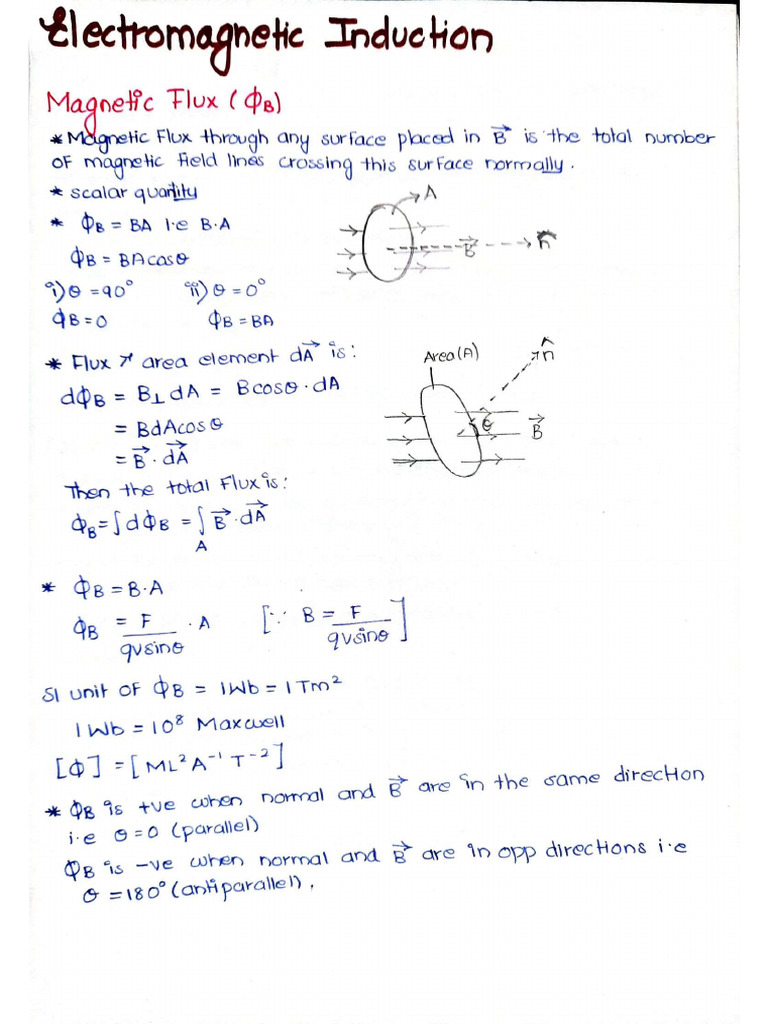 Electromagnetic Induction
Magnetic Flux (ΦB)
* Magnetic Flux through any surface placed in B⃗ is the total number
of magnetic field lines crossing this surface normally.
* scalar quantity
* ΦB = BA i.e B·A
ΦB = BAcosθ
i) θ = 90° ii) θ = 0°
ΦB = 0 ΦB = BA
A
B⃗
n̂
* Flux area element dA⃗ is:
dΦB = B⊥ dA = Bcosθ·dA
= BdAcosθ
= B⃗·dA⃗
Then the total Flux is:
ΦB = ∫dΦB = ∫B⃗·dA⃗
A
Area(A)
n̂
θ
B⃗
* ΦB = B·A
ΦB = F/qvsinθ · A [∵ B = F/qvsinθ]
SI unit of ΦB = 1Wb = 1Tm²
1Wb = 10⁸ Maxwell
[Φ] = [ML²A⁻¹T⁻²]
* ΦB is +ve when normal and B⃗ are in the same direction
i.e θ=0 (parallel)
ΦB is -ve when normal and B⃗ are in opp directions i.e
θ = 180° (antiparallel).